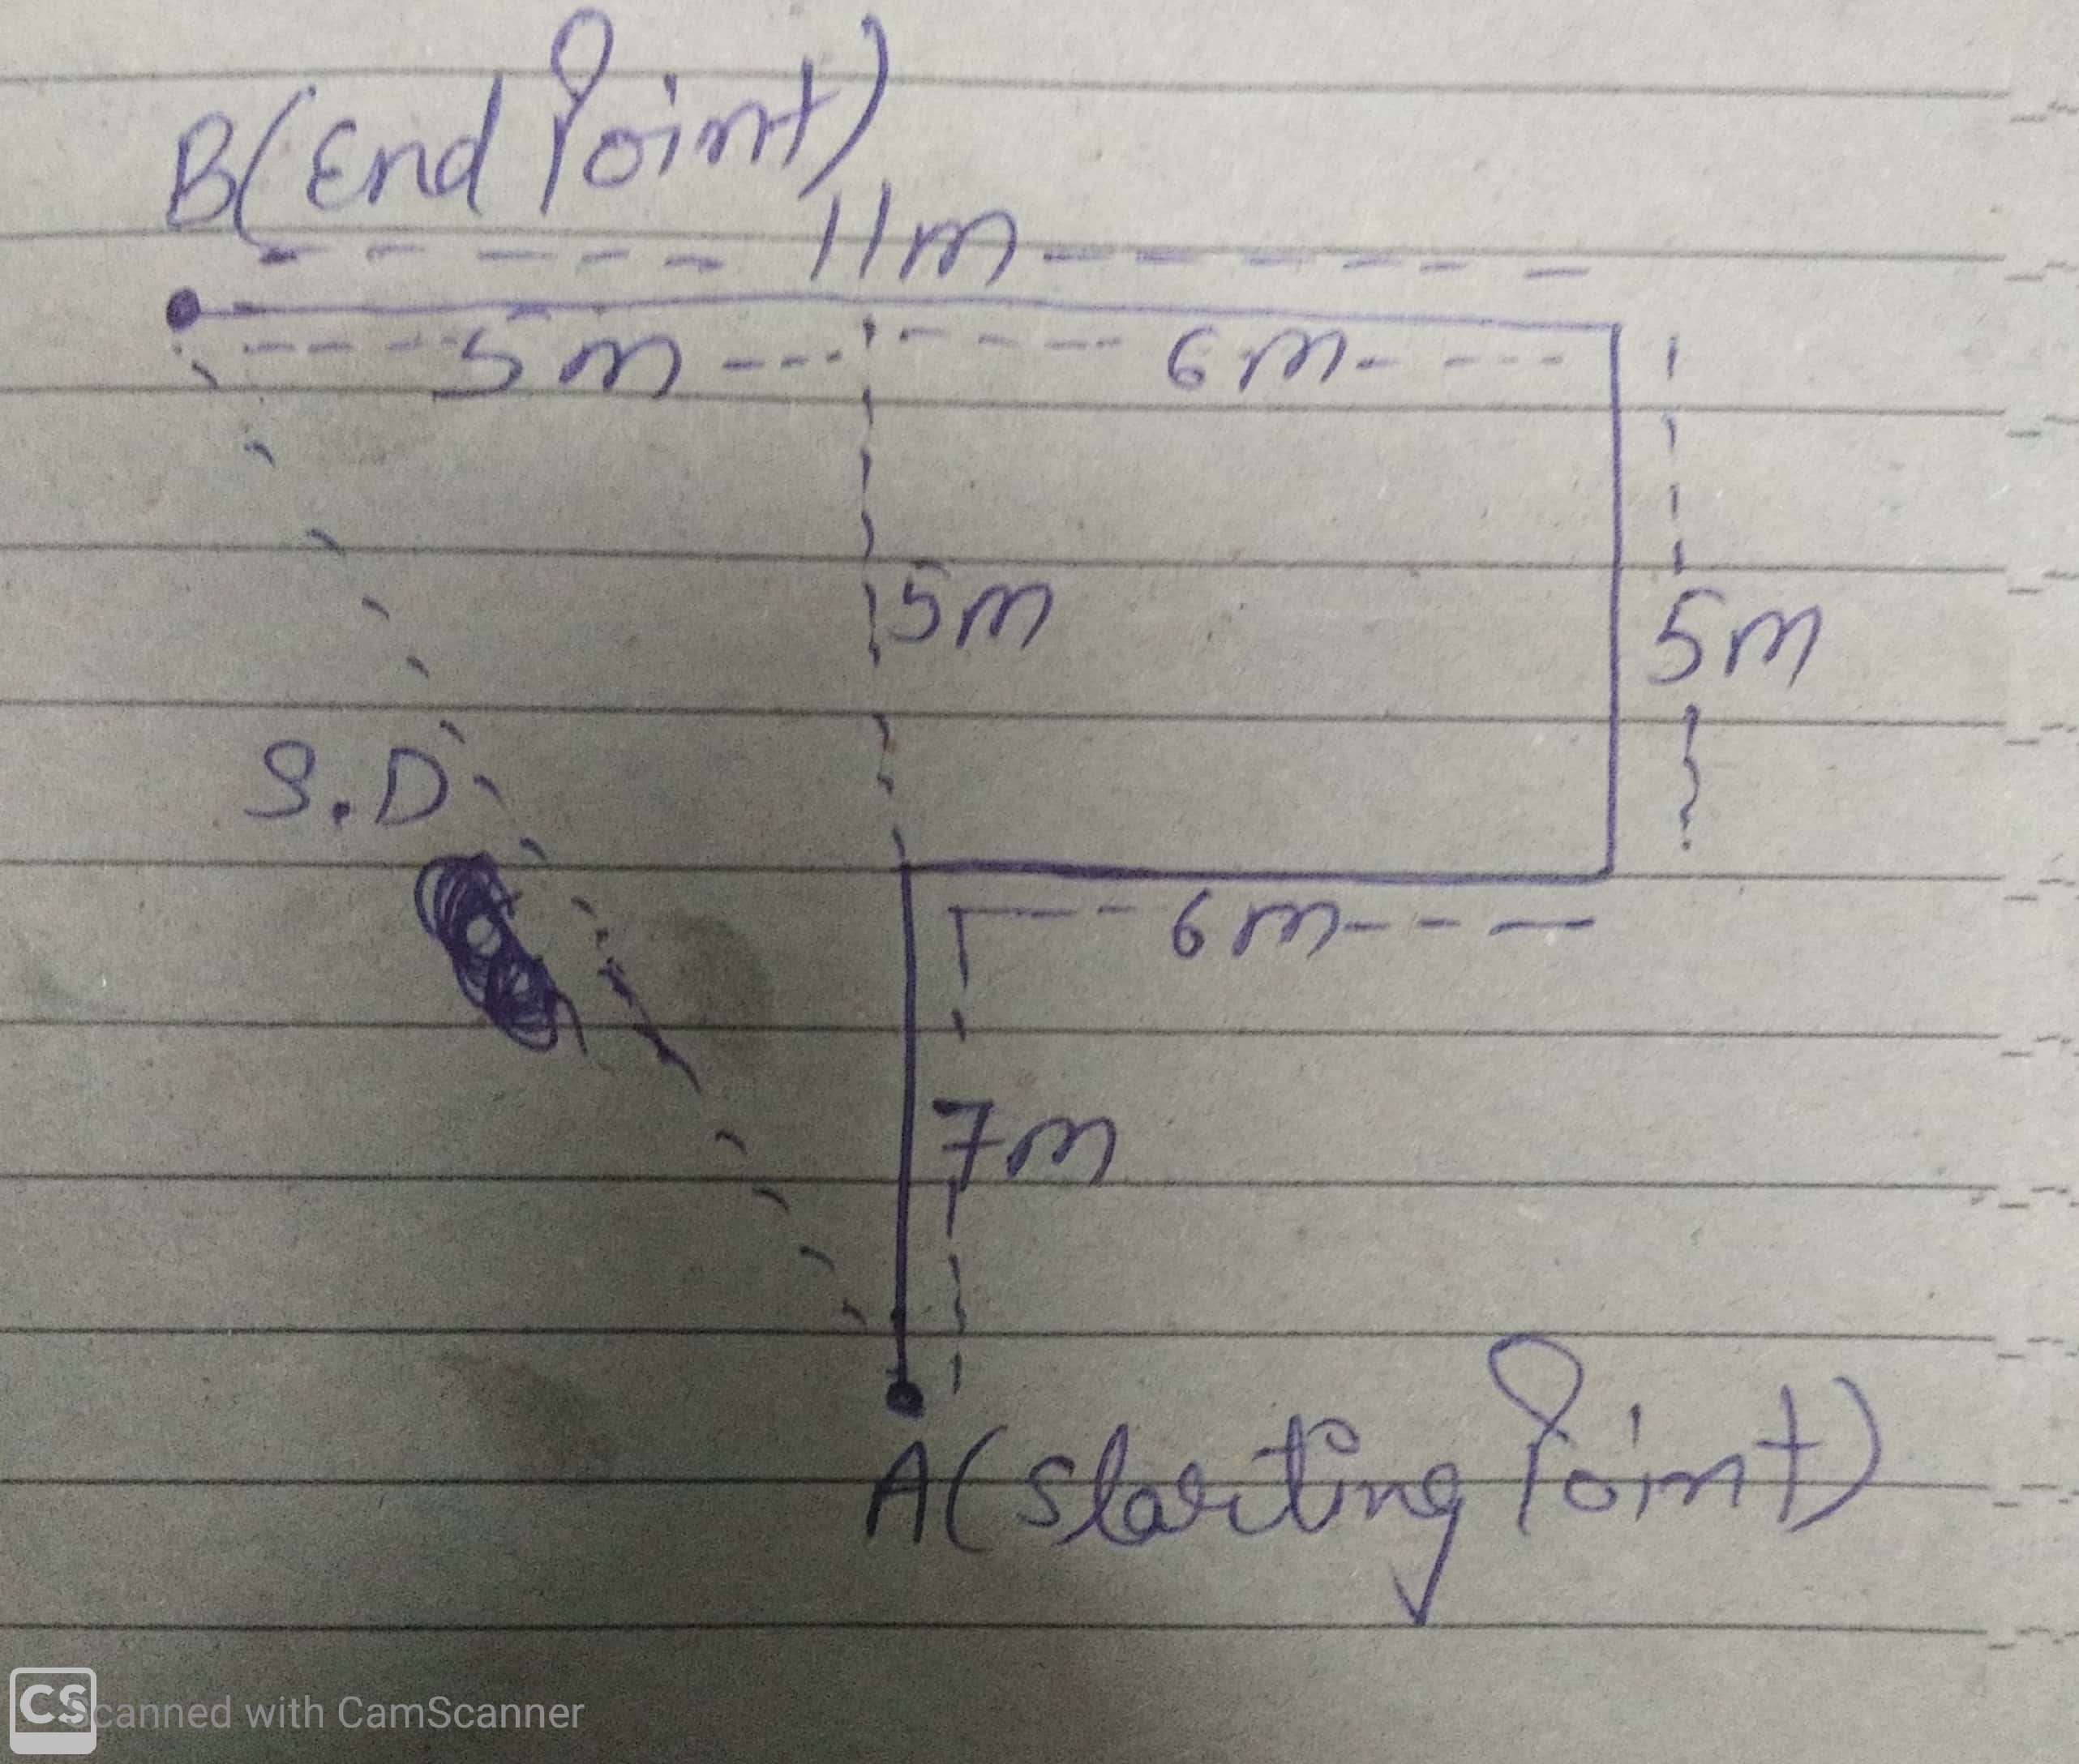 B(End Point)
11m
5m 6m
5m 5m
S.D
6m
7m
A(starting Point)
CS Scanned with CamScanner